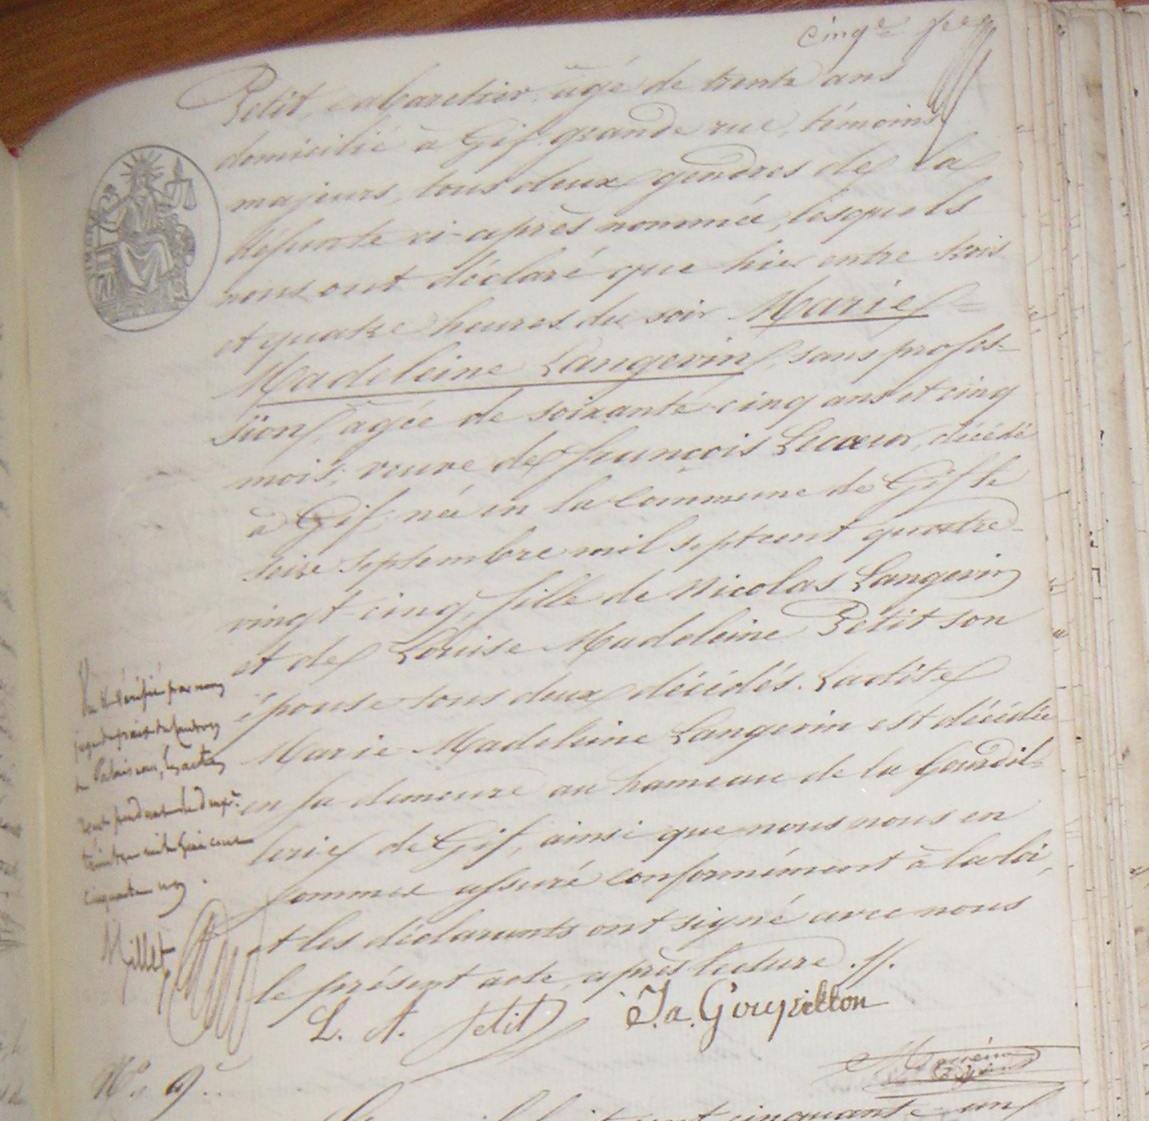 cinq.e
Petit, cabaretier, âgé de trente ans
domicilié à Gif grande rue, témoins
majeurs, tous deux gendres de la
défunte ci-après nommée, lesquels
nous ont déclaré que hier entre trois
et quatre heures du soir Marie =
Madeleine Langevin, sans profes-
sion, âgée de soixante-cinq ans et cinq
mois, veuve de françois Lecoeur, décédé
à Gif, née en la commune de Gif le
seize septembre mil sept cent quatre-
vingt-cinq, fille de Nicolas Langevin
et de Louise Madeleine Petit son
épouse tous deux décédés. Ladite
Marie Madeleine Langevin est décédée
en sa demeure au hameau de la Gourdil-
lerie de Gif, ainsi que nous nous en
sommes assuré conformément à la loi,
et les déclarants ont signé avec nous
le présent acte, après lecture ./.
Vu et vérifié par nous
juge de paix du canton
de Palaiseau, les actes
mil huit cent
cinquante un.
Millet
L. A. Petit
J.a. Goupillon
N.o 9.
cinquante un